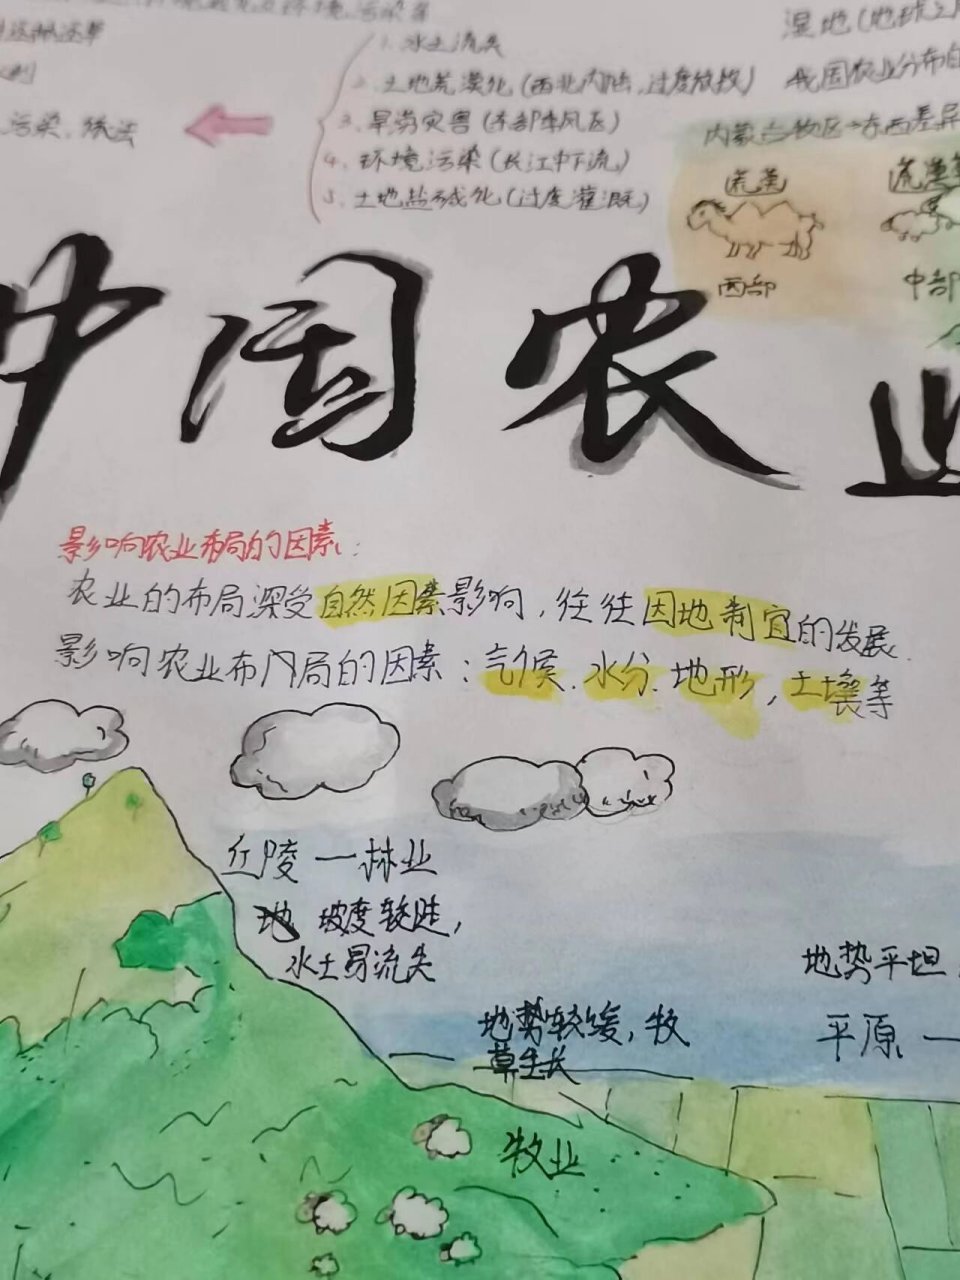 1. 水土流失
2. 土地荒漠化(西北内陆,过度放牧)
3. 旱涝灾害(东部季风区)
4. 环境污染(长江中下流)
5. 土地盐碱化(过度灌溉)
污染.
湿地(地球之
我国农业分布的
内蒙古牧区→东西差异
荒漠
西部
中部
中国农业
影响农业布局的因素:
农业的布局深受自然因素影响,往往因地制宜的发展.
影响农业布门局的因素:气候.水分.地形,土壤等
丘陵—林业
地 坡度较陡,
水土易流失
地势平坦
地势较缓,牧
草生长
平原—
牧业